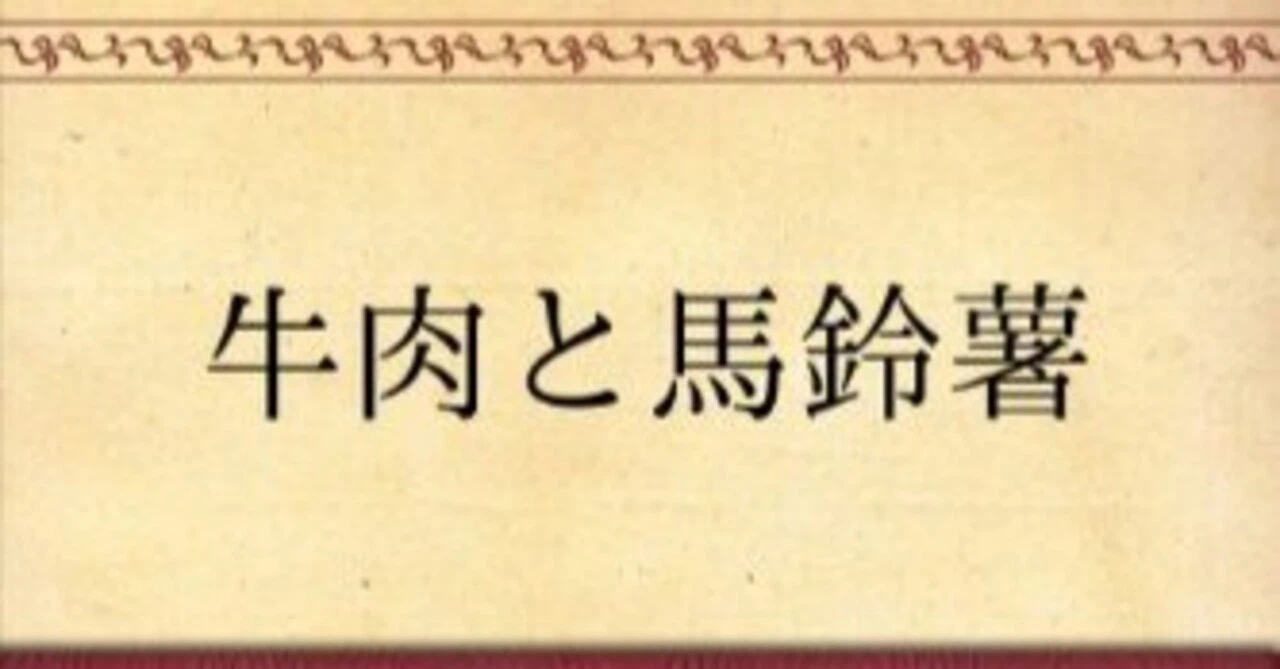 牛肉と馬鈴薯